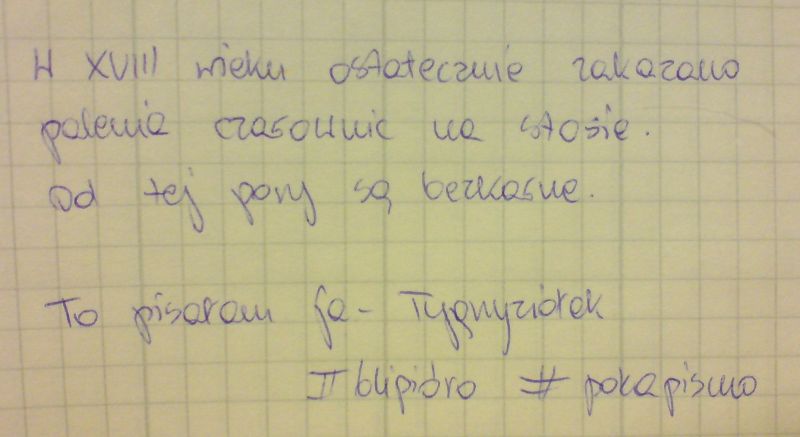 W XVIII wieku ostatecznie zakazano
palenia czarownic na stosie.
Od tej pory są bezkarne.
To pisałam ja - Tygryziołek
II blipióro # pokapismo